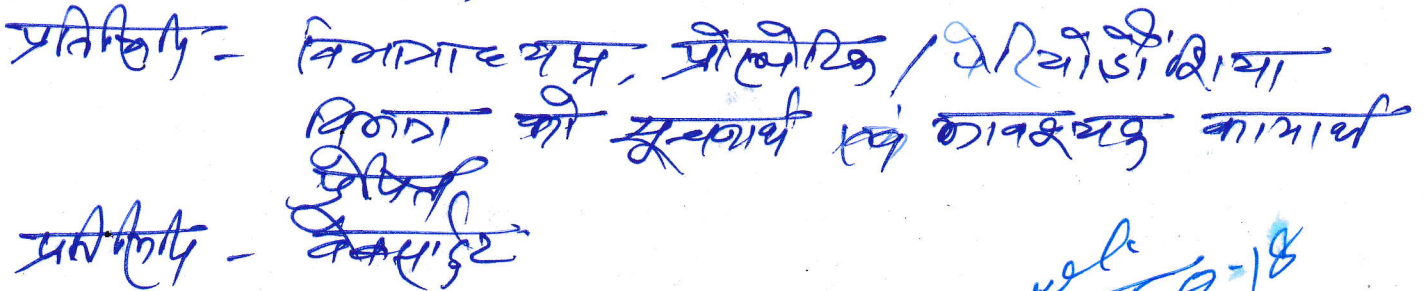 प्रतिलिपि - विभागाध्यक्ष, प्रोस्थोटिक / पेरियोडोंशिया
विभाग को सूचनार्थ एवं आवश्यक कार्यार्थ
प्रेषित
प्रतिलिपि - वेबसाईट